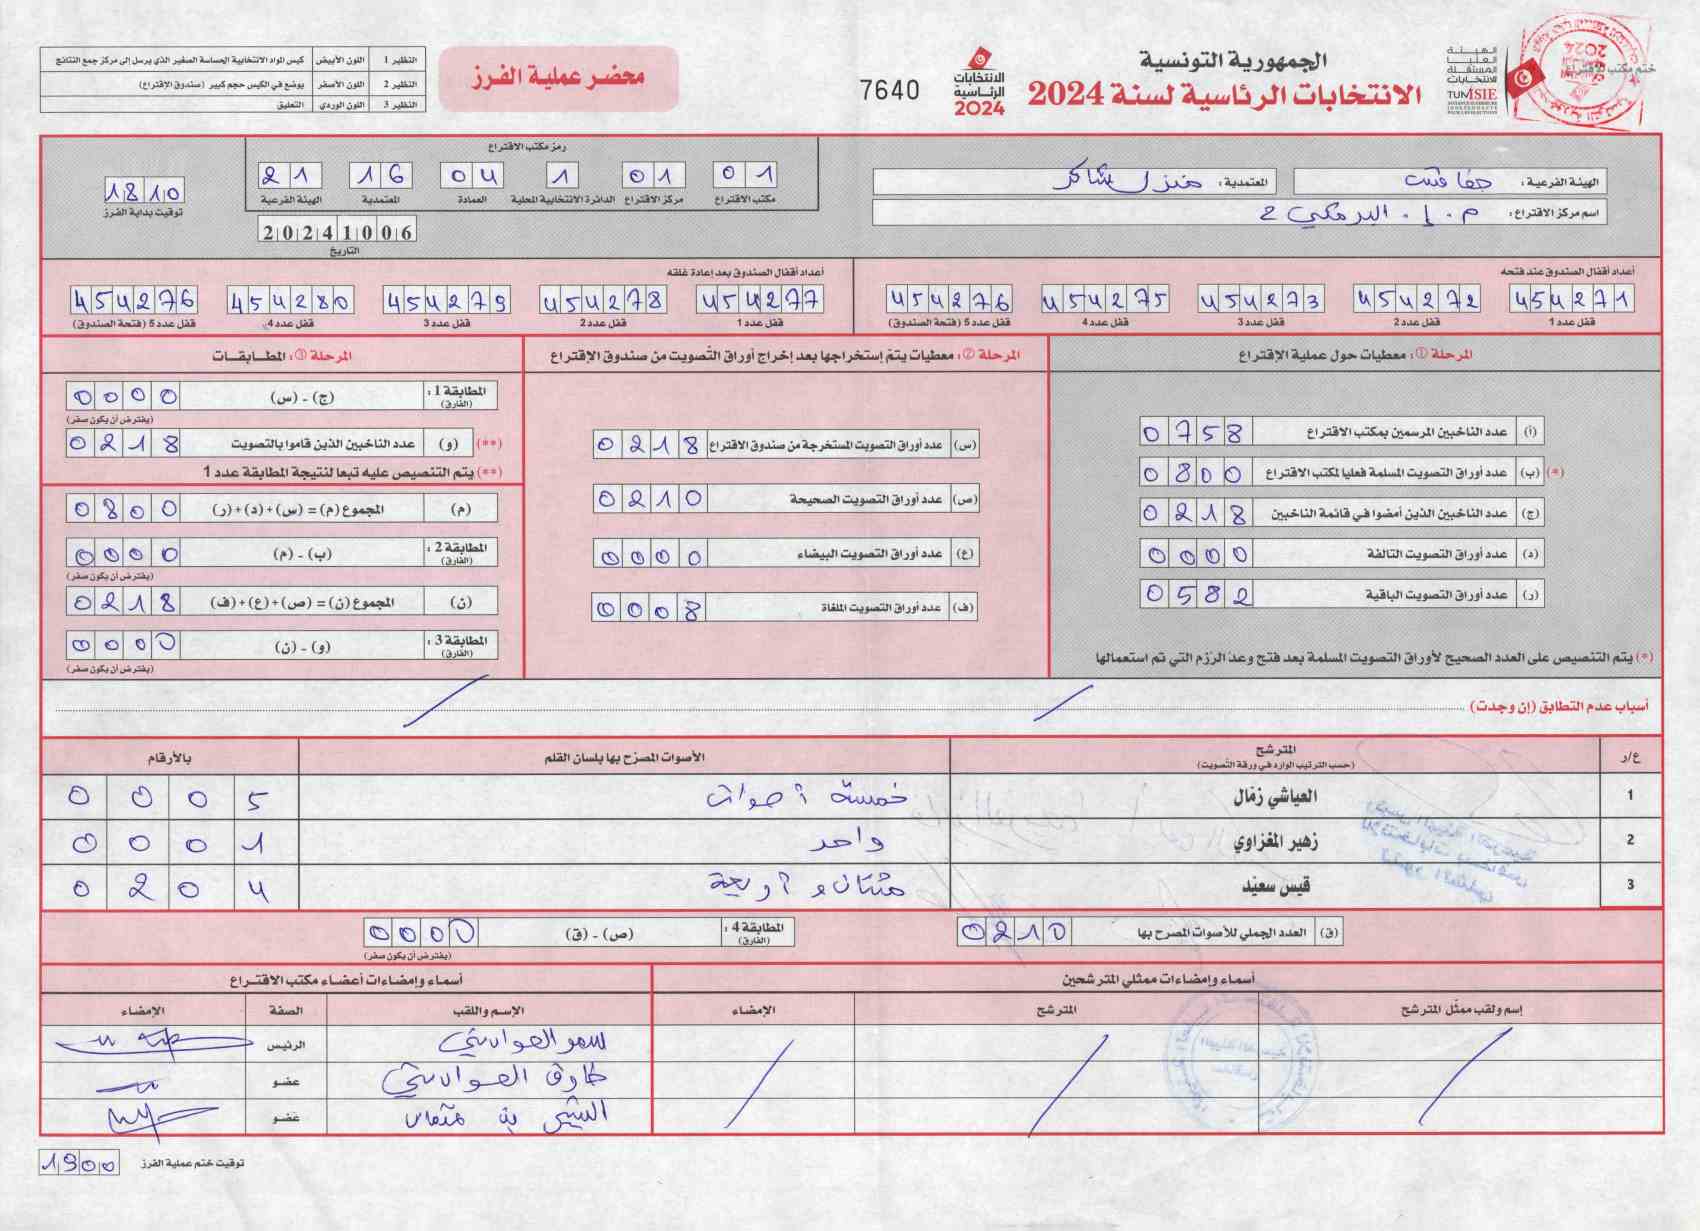 الجمهورية التونسية
الانتخابات الرئاسية لسنة 2024
الهيئة العليا المستقلة للانتخابات
TUNISIE
ختم مكتب الاقتراع
الانتخابات الرئاسية 2024
7640
محضر عملية الفرز
النظير 1 اللون الأبيض كيس المواد الانتخابية الحساسة الصغير الذي يرسل إلى مركز جمع النتائج
النظير 2 اللون الأصفر يوضع في الكيس حجم كبير (صندوق الإقتراع)
النظير 3 اللون الوردي التعليق
الهيئة الفرعية: صفاقس المعتمدية: منزل شاكر
اسم مركز الاقتراع: م. إ. البرمكي 2
رمز مكتب الاقتراع
01 01 1 04 16 21
مكتب الاقتراع مركز الاقتراع الدائرة الانتخابية المحلية العمادة المعتمدية الهيئة الفرعية
20241006
التاريخ
1810
توقيت بداية الفرز
أعداد أقفال الصندوق عند فتحه
454271 454272 454273 454275 454276
قفل عدد 1 قفل عدد 2 قفل عدد 3 قفل عدد 4 قفل عدد 5 (فتحة الصندوق)
أعداد أقفال الصندوق بعد إعادة غلقه
454277 454278 454279 454280 454276
قفل عدد 1 قفل عدد 2 قفل عدد 3 قفل عدد 4 قفل عدد 5 (فتحة الصندوق)
المرحلة ①: معطيات حول عملية الإقتراع
(أ) عدد الناخبين المرسمين بمكتب الاقتراع 0758
(*) (ب) عدد أوراق التصويت المسلمة فعليا لمكتب الاقتراع 0800
(ج) عدد الناخبين الذين أمضوا في قائمة الناخبين 0218
(د) عدد أوراق التصويت التالفة 0000
(ر) عدد أوراق التصويت الباقية 0582
(*) يتم التنصيص على العدد الصحيح لأوراق التصويت المسلمة بعد فتح وعدّ الرّزم التي تم استعمالها
المرحلة ②: معطيات يتمّ إستخراجها بعد إخراج أوراق التّصويت من صندوق الإقتراع
(س) عدد أوراق التصويت المستخرجة من صندوق الاقتراع 0218
(ص) عدد أوراق التصويت الصحيحة 0210
(ع) عدد أوراق التصويت البيضاء 0000
(ف) عدد أوراق التصويت الملغاة 0008
المرحلة ③: المطابقات
المطابقة 1: (الفارق) (ج) - (س) 0000
(يفترض أن يكون صفر)
(**) (و) عدد الناخبين الذين قاموا بالتصويت 0218
(**) يتم التنصيص عليه تبعا لنتيجة المطابقة عدد 1
(م) المجموع (م) = (س)+(د)+(ر) 0800
المطابقة 2: (الفارق) (ب) - (م) 0000
(يفترض أن يكون صفر)
(ن) المجموع (ن) = (ص)+(ع)+(ف) 0218
المطابقة 3: (الفارق) (و) - (ن) 0000
(يفترض أن يكون صفر)
أسباب عدم التطابق (إن وجدت)
ع/ر المترشح (حسب الترتيب الوارد في ورقة التّصويت) الأصوات المصرّح بها بلسان القلم بالأرقام
1 العياشي زمّال خمسة أصوات 0005
2 زهير المغزاوي واحد 0001
3 قيس سعيّد مئتان و أربعة 0204
(ق) العدد الجملي للأصوات المصرح بها 0210
المطابقة 4: (الفارق) (ص) - (ق) 0000
(يفترض أن يكون صفر)
أسماء وإمضاءات ممثلي المترشحين
إسم ولقب ممثّل المترشح المترشح الإمضاء
أسماء وإمضاءات أعضاء مكتب الاقتراع
الإسم واللقب الصفة الإمضاء
الرئيس
طارق العوادني عضو
البشير بن عضو
توقيت ختم عملية الفرز 1900